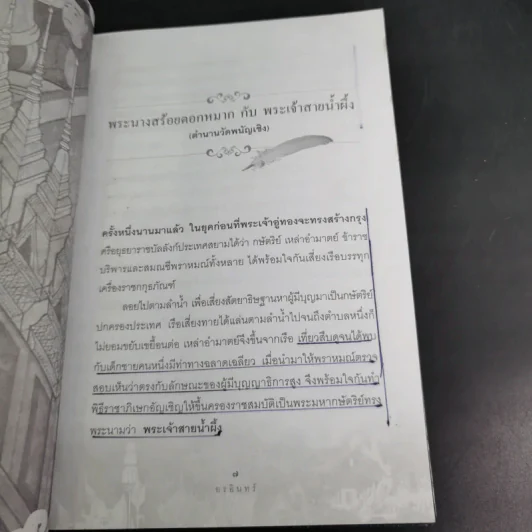 พระนางสร้อยดอกหมาก กับ พระเจ้าสายน้ำผึ้ง
(ตำนานวัดพนัญเชิง)
ครั้งหนึ่งนานมาแล้ว ในยุคก่อนที่พระเจ้าอู่ทองจะทรงสร้างกรุง
ศรีอยุธยาราชบัลลังก์ประเทศสยามได้ว่า กษัตริย์ เหล่าอำมาตย์ ข้าราช
บริพารและสมณชีพราหมณ์ทั้งหลาย ได้พร้อมใจกันเสี่ยงเรือบรรทุก
เครื่องราชกกุธภัณฑ์
ลอยไปตามลำน้ำ เพื่อเสี่ยงสัตยาธิษฐานหาผู้มีบุญมาเป็นกษัตริย์
ปกครองประเทศ เรือเสี่ยงทายได้แล่นตามลำน้ำไปจนถึงตำบลหนึ่งก็
ไม่ยอมขยับเขยื้อนต่อ เหล่าอำมาตย์จึงขึ้นจากเรือ เที่ยวสืบดูจนได้พบ
กับเด็กชายคนหนึ่งมีท่าทางฉลาดเฉลียว เมื่อนำมาให้พราหมณ์ตรวจ
สอบเห็นว่าตรงกับลักษณะของผู้มีบุญญาธิการสูง จึงพร้อมใจกันทำ
พิธีราชาภิเษกอัญเชิญให้ขึ้นครองราชสมบัติเป็นพระมหากษัตริย์ทรง
พระนามว่า พระเจ้าสายน้ำผึ้ง
๗
อรอินทร์